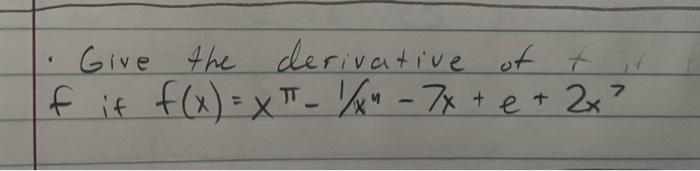 · Give the derivative of
f if f(x) = x^π - 1/xⁿ - 7x + e + 2x⁷